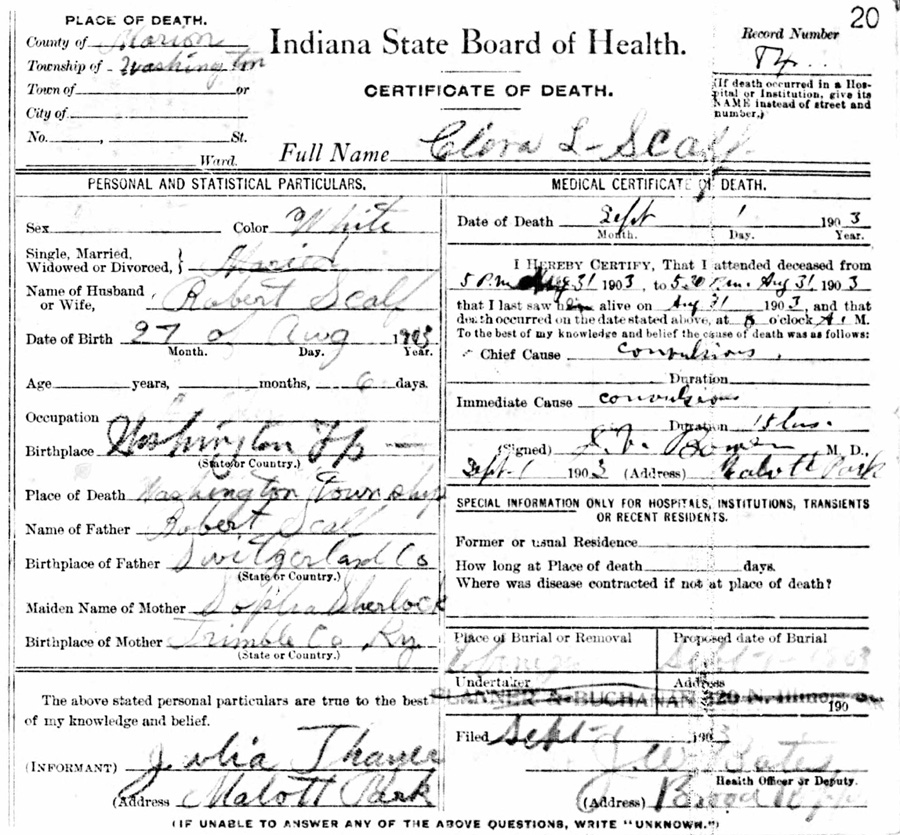 20
PLACE OF DEATH.
County of Marion
Township of Washington
Town of or
City of
No. , St.
Ward.
Indiana State Board of Health.
CERTIFICATE OF DEATH.
Full Name Clora L. Scalf
Record Number
(If death occurred in a Hos-
pital or Institution, give its
NAME instead of street and
number.)
PERSONAL AND STATISTICAL PARTICULARS.
Sex Color White
Single, Married,
Widowed or Divorced, }
Name of Husband
or Wife, Robert Scalf
Date of Birth 27 of Aug 1903
Month. Day. Year.
Age years, months, 6 days.
Occupation
Birthplace Washington Tp —
(State or Country.)
Place of Death Washington Township
Name of Father Robert Scalf
Birthplace of Father Switzerland Co
(State or Country.)
Maiden Name of Mother Sophia Sherlock
Birthplace of Mother Trimble Co Ky
(State or Country.)
The above stated personal particulars are true to the best
of my knowledge and belief.
(INFORMANT) Julia
(Address Malott Park
MEDICAL CERTIFICATE OF DEATH.
Date of Death Sept 1 1903
Month. Day. Year.
I HEREBY CERTIFY, That I attended deceased from
5 P.m Aug 31 1903, to 5:30 P.m. Aug 31 1903
that I last saw him alive on Aug 31 1903, and that
death occurred on the date stated above, at o'clock A. M.
To the best of my knowledge and belief the cause of death was as follows:
Chief Cause convulsions.
Duration
Immediate Cause convulsions
Duration
(Signed) Bowen M. D.,
Sept. 1 1903 (Address) Malott Park
SPECIAL INFORMATION ONLY FOR HOSPITALS, INSTITUTIONS, TRANSIENTS
OR RECENT RESIDENTS.
Former or usual Residence
How long at Place of death days.
Where was disease contracted if not at place of death?
Place of Burial or Removal
Proposed date of Burial
Sept 1 - 1903
Undertaker
Address
FLANNER & BUCHANAN 320 N. Illinois St.
190
Filed Sept 1 1903
Bates
Health Officer or Deputy.
(Address) Broad Ripple
(IF UNABLE TO ANSWER ANY OF THE ABOVE QUESTIONS, WRITE "UNKNOWN.")